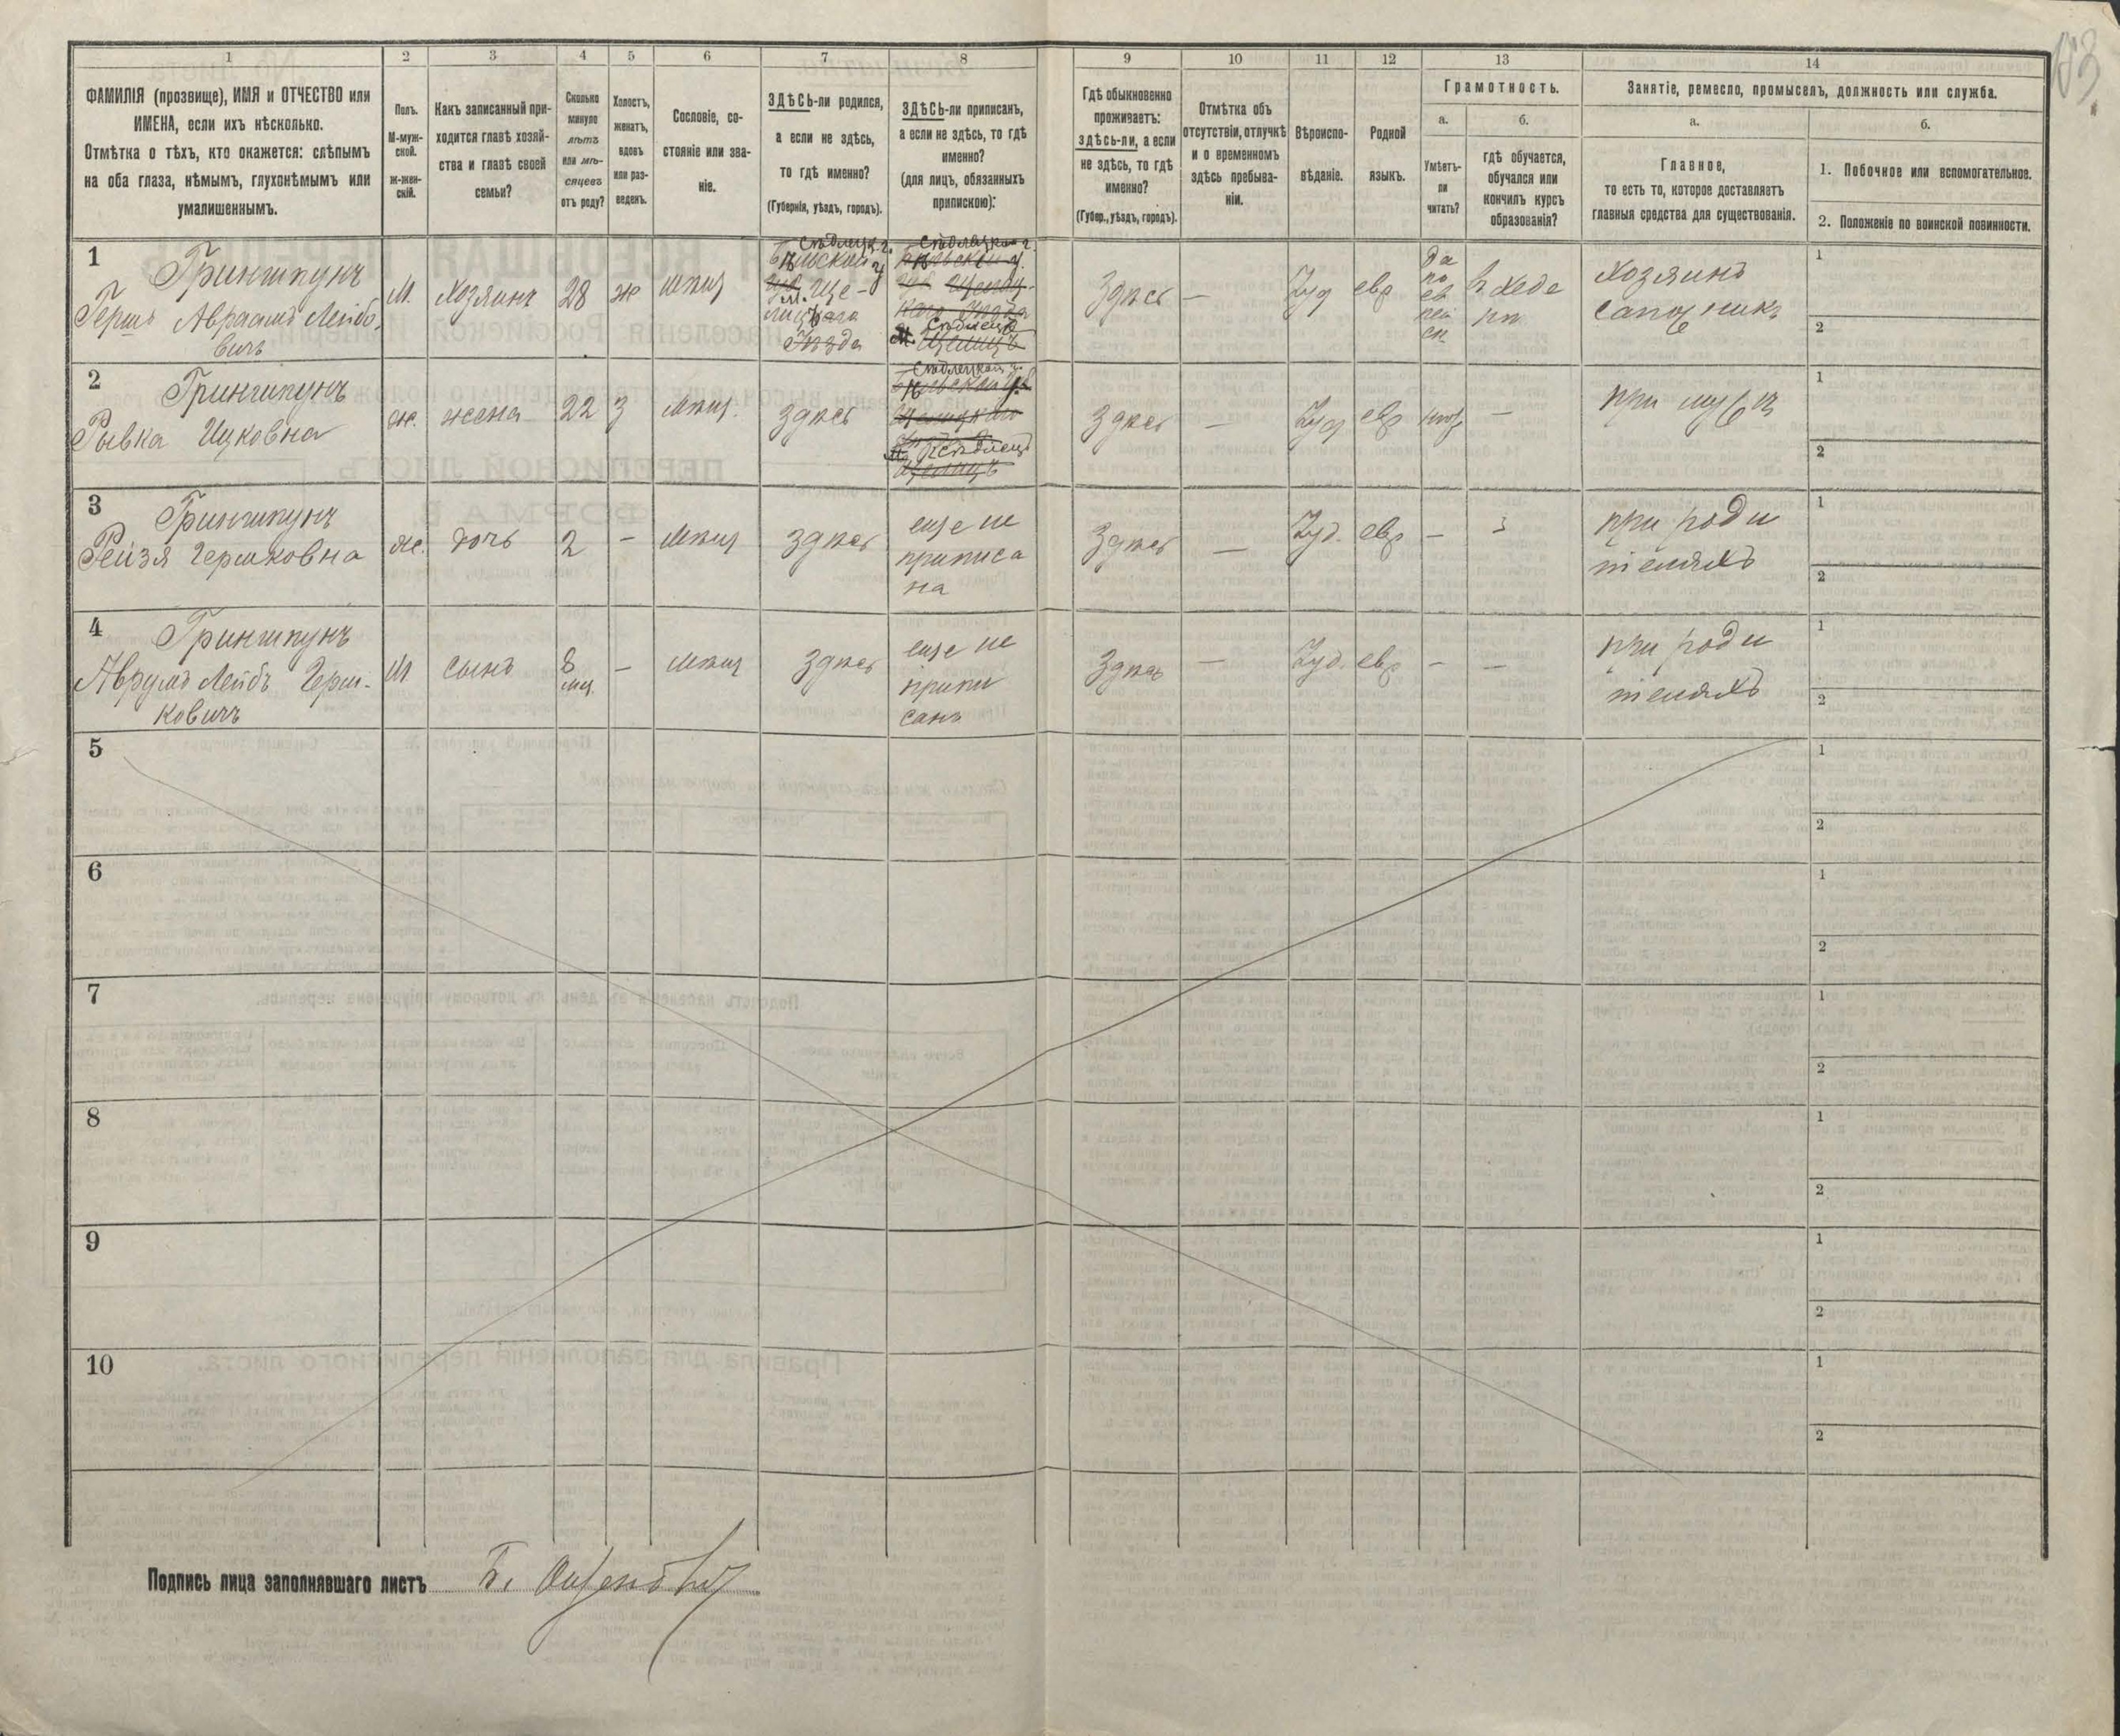 1
2
3
4
5
6
7
8
9
10
11
12
13
14
ФАМИЛІЯ (прозвище), ИМЯ и ОТЧЕСТВО или
ИМЕНА, если ихъ нѣсколько.
Отмѣтка о тѣхъ, кто окажется: слѣпымъ
на оба глаза, нѣмымъ, глухонѣмымъ или
умалишеннымъ.
Полъ.
М-муж-
ской.
Ж-жен-
скій.
Какъ записанный при-
ходится главѣ хозяй-
ства и главѣ своей
семьи?
Сколько
минуло
лѣтъ
или мѣ-
сяцевъ
отъ роду?
Холостъ,
женатъ,
вдовъ
или раз-
веденъ.
Сословіе, со-
стояніе или зва-
ніе.
ЗДѢСЬ-ли родился,
а если не здѣсь,
то гдѣ именно?
(Губернія, уѣздъ, городъ).
ЗДѢСЬ-ли приписанъ,
а если не здѣсь, то гдѣ
именно?
(для лицъ, обязанныхъ
припискою):
Гдѣ обыкновенно
проживаетъ:
здѣсь-ли, а если
не здѣсь, то гдѣ
именно?
(Губер., уѣздъ, городъ).
Отмѣтка объ
отсутствіи, отлучкѣ
и о временномъ
здѣсь пребыва-
ніи.
Вѣроиспо-
вѣданіе.
Родной
языкъ.
Грамотность.
а.
Умѣетъ-
ли
читать?
б.
гдѣ обучается,
обучался или
кончилъ курсъ
образованія?
Занятіе, ремесло, промыселъ, должность или служба.
а.
Главное,
то есть то, которое доставляетъ
главныя средства для существованія.
б.
1. Побочное или вспомогательное.
2. Положеніе по воинской повинности.
1
Грингшпунъ
Гершъ Авраамъ Лейбо-
вичъ
М.
Хозяинъ
28
ж
Здѣсь
—
Іуд
евр
да
по
ев
рей
ск
въ хеде
рѣ
Хозяинъ
сапожникъ
1
2
2
Грингшпунъ
Рывка Ицковна
ж.
жена
22
З
мѣщ.
здѣсь
Здѣсь
—
Іуд
евр
нѣт
—
при мужѣ
1
2
3
Грингшпунъ
Рейзя Гершковна
ж.
дочь
2
—
мѣщ
здѣсь
еще не
приписа
на
Здѣсь
—
Іуд.
евр
—
при роди
теляхъ
1
2
4
Грингшпунъ
Аврумъ Лейбъ Герш-
ковичъ
М
сынъ
8
мѣс.
—
мѣщ
здѣсь
еще не
припи
санъ
Здѣсь
—
Іуд.
евр
—
—
при роди
теляхъ
1
2
5
1
2
6
1
2
7
1
2
8
1
2
9
1
2
10
1
2
Подпись лица заполнявшаго листъ